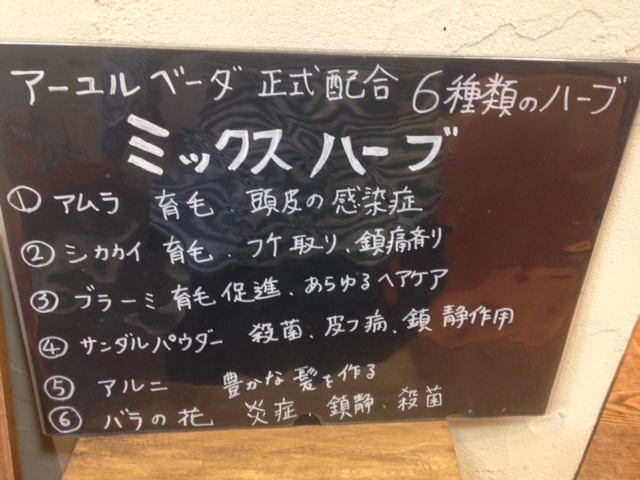 アーユルベーダ 正式配合 6種類のハーブ
ミックスハーブ
① アムラ 育毛．頭皮の感染症
② シカカイ 育毛．フケ取り、鎮痛剤り
③ ブラーミ 育毛促進、あらゆるヘアケア
④ サンダルパウダー 殺菌、皮フ病、鎮静作用
⑤ アルニ 豊かな髪を作る
⑥ バラの花 炎症 鎮静．殺菌